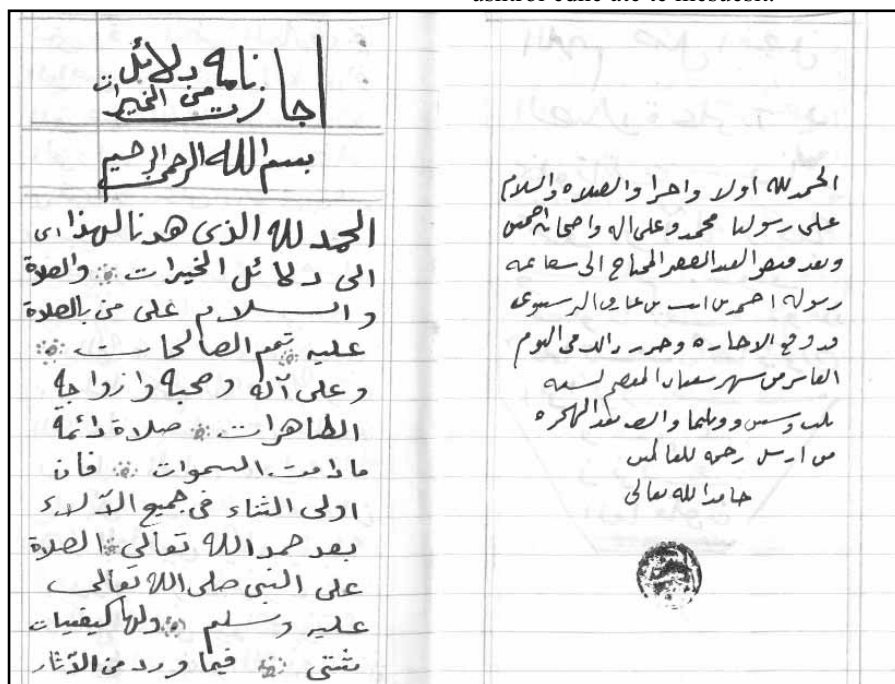 ashtroi edhe ate te mesuesit.
اجازت نامه دلائل
من الخيرات
بسم الله الرحمن الرحيم
الحمد لله الذى هدنا لهذا اى
الى دلائل الخيرات والصلاة
والسلام على من بالصلاة
عليه تتم الصالحات
وعلى آله وصحبه وازواجه
الطاهرات صلاة دائمة
مادامت السموات فان
اولى الثناء فى جميع الآلاء
بعد حمد الله تعالى الصلاة
على النبى صلى الله تعالى
عليه وسلم ولها كيفيات
شتى فيما ورد من الآثار
الحمد لله اولا واخرا والصلاة والسلام
على رسولنا محمد وعلى اله واصحابه اجمعين
وبعد فيقول العبد الفقير المحتاج الى شفاعة
رسوله احمد بن
قد وقع الاجازه وحرر ذالك فى اليوم
العاشر من شهر شعبان المعظم لسنة
وستين والف بعد الهجرة
من ارسل رحمة للعالمين
حامدا لله تعالى